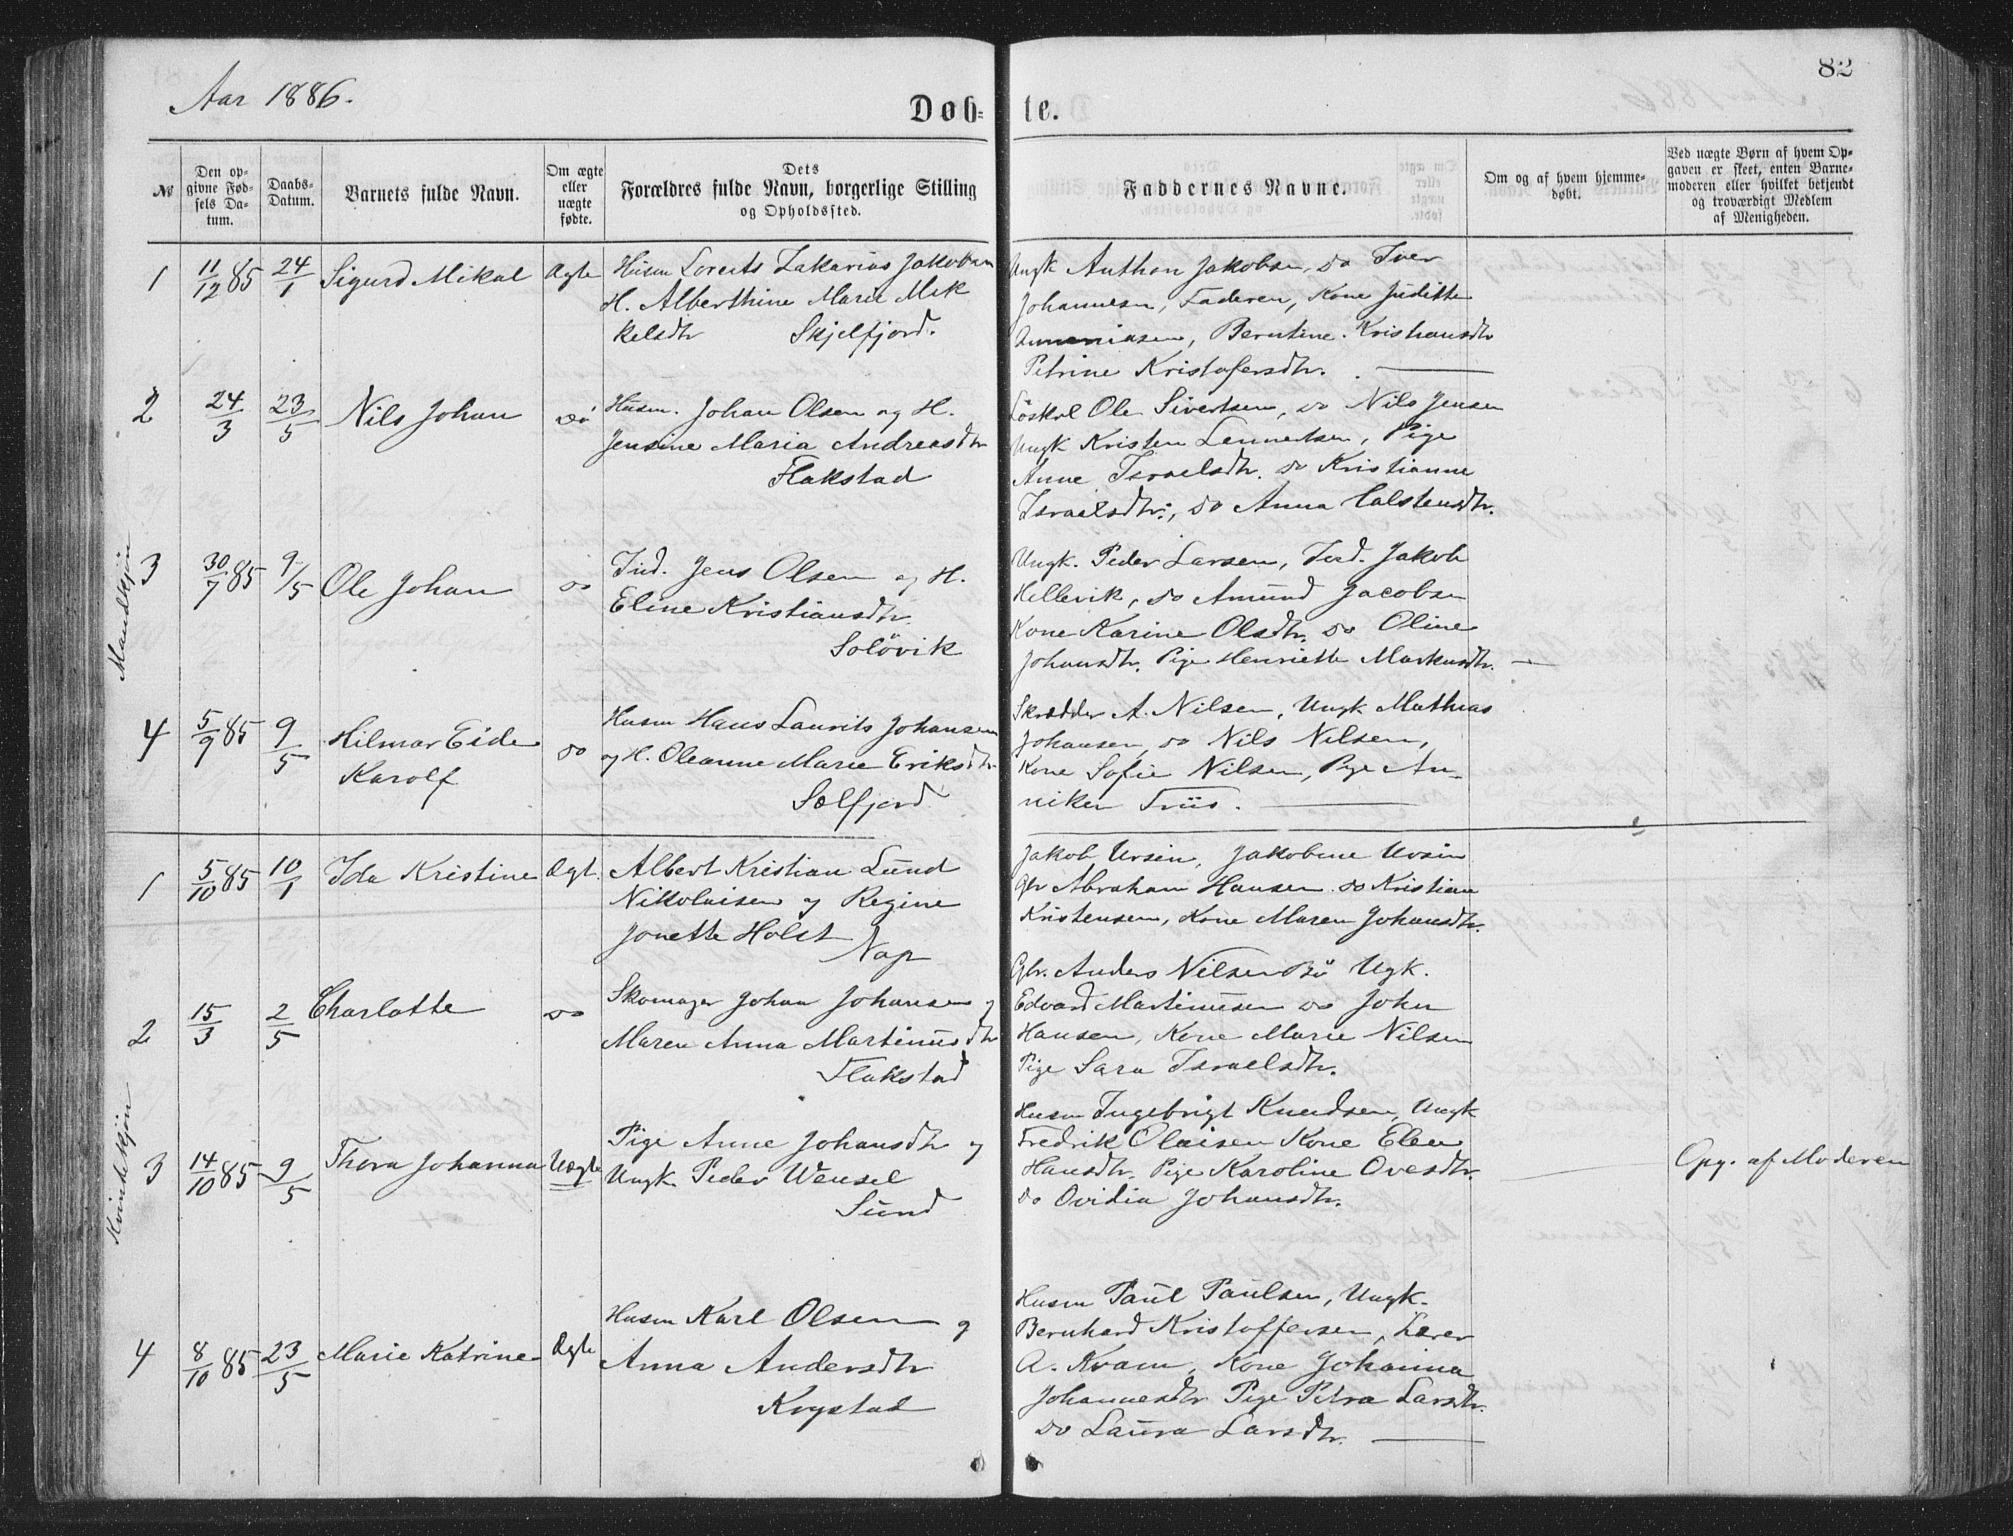 Aar 1886.
82
Døb-
te.
No
Den op-
givne Fød-
sels Da-
tum.
Daabs-
Datum.
Barnets fulde Navn.
Om ægte
eller
uægte
fødte.
Dets
Forældres fulde Navn, borgerlige Stilling
og Opholdssted.
Faddernes Navne.
Om og af hvem hjemme-
døbt.
Ved uægte Børn af hvem Op-
gaven er skeet, enten Barne-
moderen eller hvilket bekjendt
og troværdigt Medlem
af Menigheden.
Mandkjøn
1
11/12 85
24/1
Sigurd Mikal
Ægte
Husm Lorents Zakarias Jakobsen
H. Alberthine Marie Mik
kelsdtr Skjelfjord.
Ungk Anthon Jakobsen, do Iver
Johannesen, Faderen, Kone Judithe
Annaniasen, Berntine Kristiansdtr
Petrine Kristofersdtr.
2
24/3
23/5
Nils Johan
do
Husm. Johan Olsen og H.
Jensine Maria Andreasdtr
Flakstad
Løskal Ole Sivertsen, do Nils Jensen
Ungk Kristen Lennertsen, Pige
Anne Israelsdtr. do Kristianne
Israelsdtr., do Anna Calstensdtr.
3
30/7 85
9/5
Ole Johan
do
Ind. Jens Olsen og H.
Eline Kristiansdtr.
Soløvik
Ungk. Peder Larsen, Ind. Jakob
Hellevik, do Amund Jacobsen
Kone Karine Olsdtr. do Oline
Johansdtr. Pige Henriette Markusdtr.
4
5/9 85
9/5
Hilmar Eide
Karolf
do
Husm Hans Laurits Johansen
og H. Oleanne Marie Eriksdtr
Sølfjord
Skrædder A. Nilsen, Ungk Mathias
Johansen do Nils Nilsen,
Kone Sofie Nilsen, Pige An-
niken Friis.
Kvindekjøn
1
5/10 85
10/1
Ida Kristine
Ægt.
Albert Kristian Lund
Nikolaisen og Regine
Jonette Holst
Nap
Jakob Ursin, Jakobine Ursin
Gbr Abraham Hansen do Kristian
Kristensen, Kone Maren Johansdtr.
2
15/3
2/5
Charlotte
do
Skomager Johan Johansen og
Maren Anna Martinusdtr
Flakstad
Gbr. Anders Nilsen Bø Ugk.
Edvard Martinusen do John
Hansen, Kone Marie Nilsen
Pige Sara Israelsdtr.
3
14/10 85
9/5
Thora Johanna
Uægte
Pige Anne Johansdtr og
Ungk Peder Wensel
Sund
Husm Ingebrigt Knudsen, Ungk
Fredrik Olaisen Kone Elen
Hansdtr. Pige Karoline Ovesdtr.
do Ovidia Johansdtr.
Opg. af Moderen
4
8/10 85
23/5
Marie Katrine
Ægte
Husm Karl Olsen og
Anna Andersdtr
Krystad
Husm Paul Paulsen, Ungk.
Bernhard Kristoffersen, Lærer
A. Kvam, Kone Johanna
Johannesdtr Pige Petra Larsdtr.
do Laura Larsdtr.